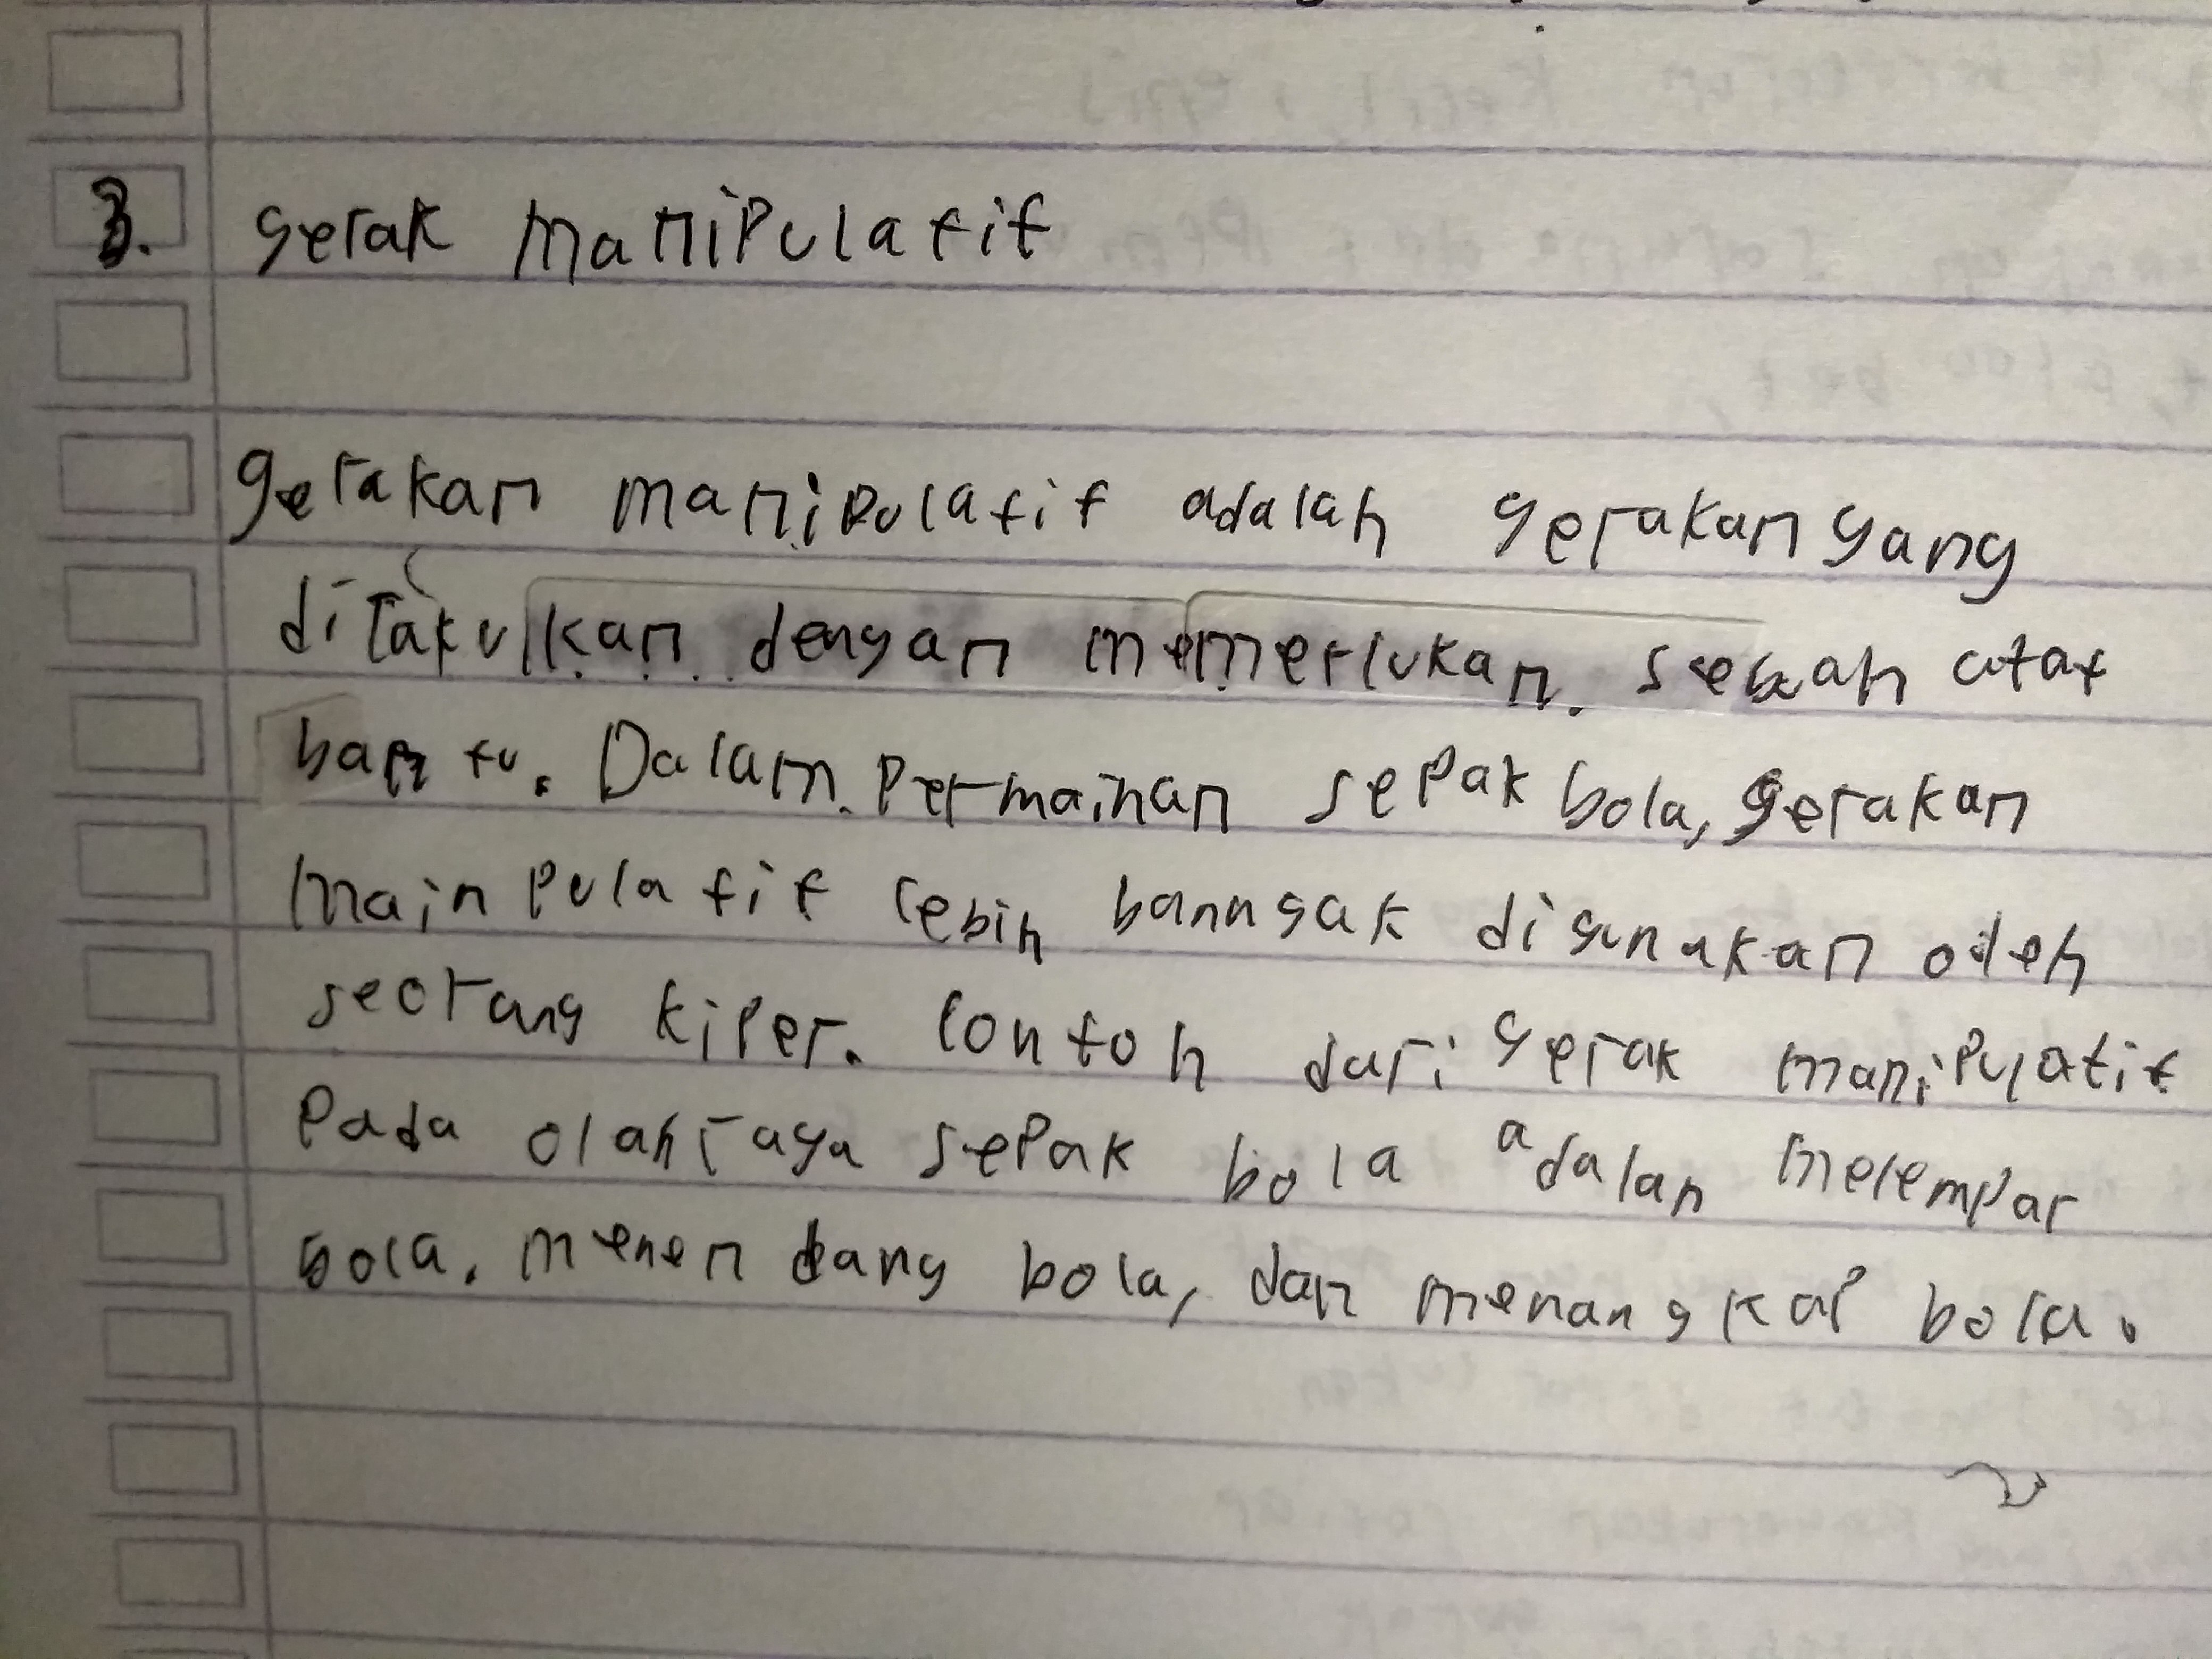 3. gerak manipulatif
gerakan manipulatif adalah gerakan yang
dilakukan dengan memerlukan sebuah alat
bantu. Dalam permainan sepak bola, gerakan
mainpulatif lebih bannyak digunakan oleh
seorang kiper. Contoh dari gerak manipulatif
Pada olahraga sepak bola adalah melempar
bola. menendang bola, dan menangkap bola.